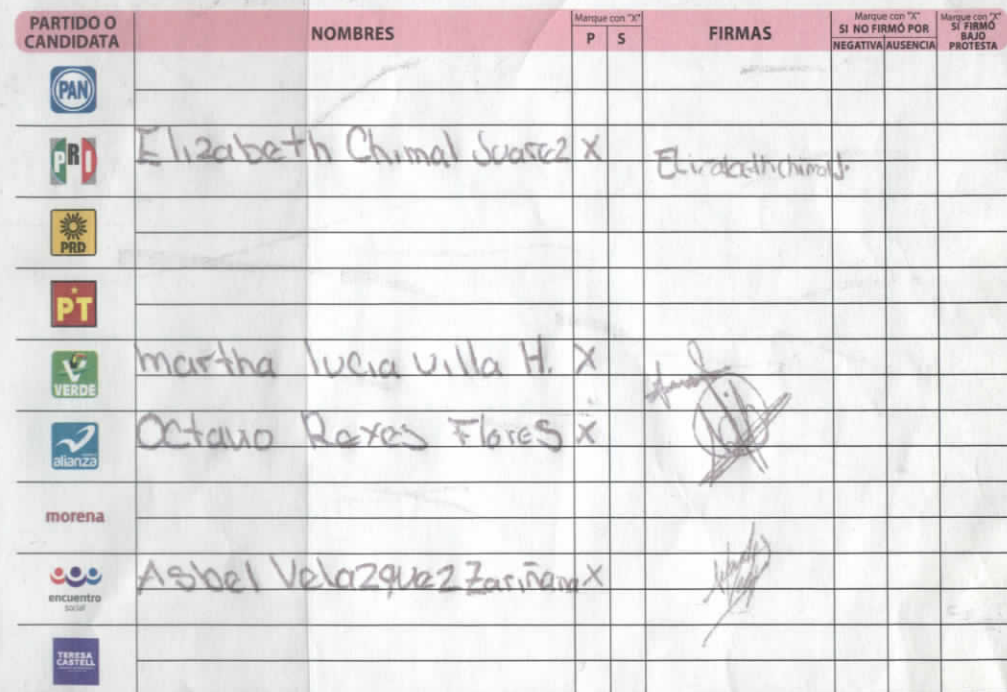 PARTIDO O CANDIDATA
NOMBRES
Marque con "X"
P S
FIRMAS
Marque con "X" SI NO FIRMÓ POR
NEGATIVA AUSENCIA
Marque con "X" SI FIRMÓ BAJO PROTESTA
PAN
PRI Elizabeth Chimal Suarez X
PRD
PT
VERDE martha lucia villa H. X
alianza Octavio Reyes Flores X
morena
encuentro social Asbel Velazquez Zariñana X
TERESA CASTELL